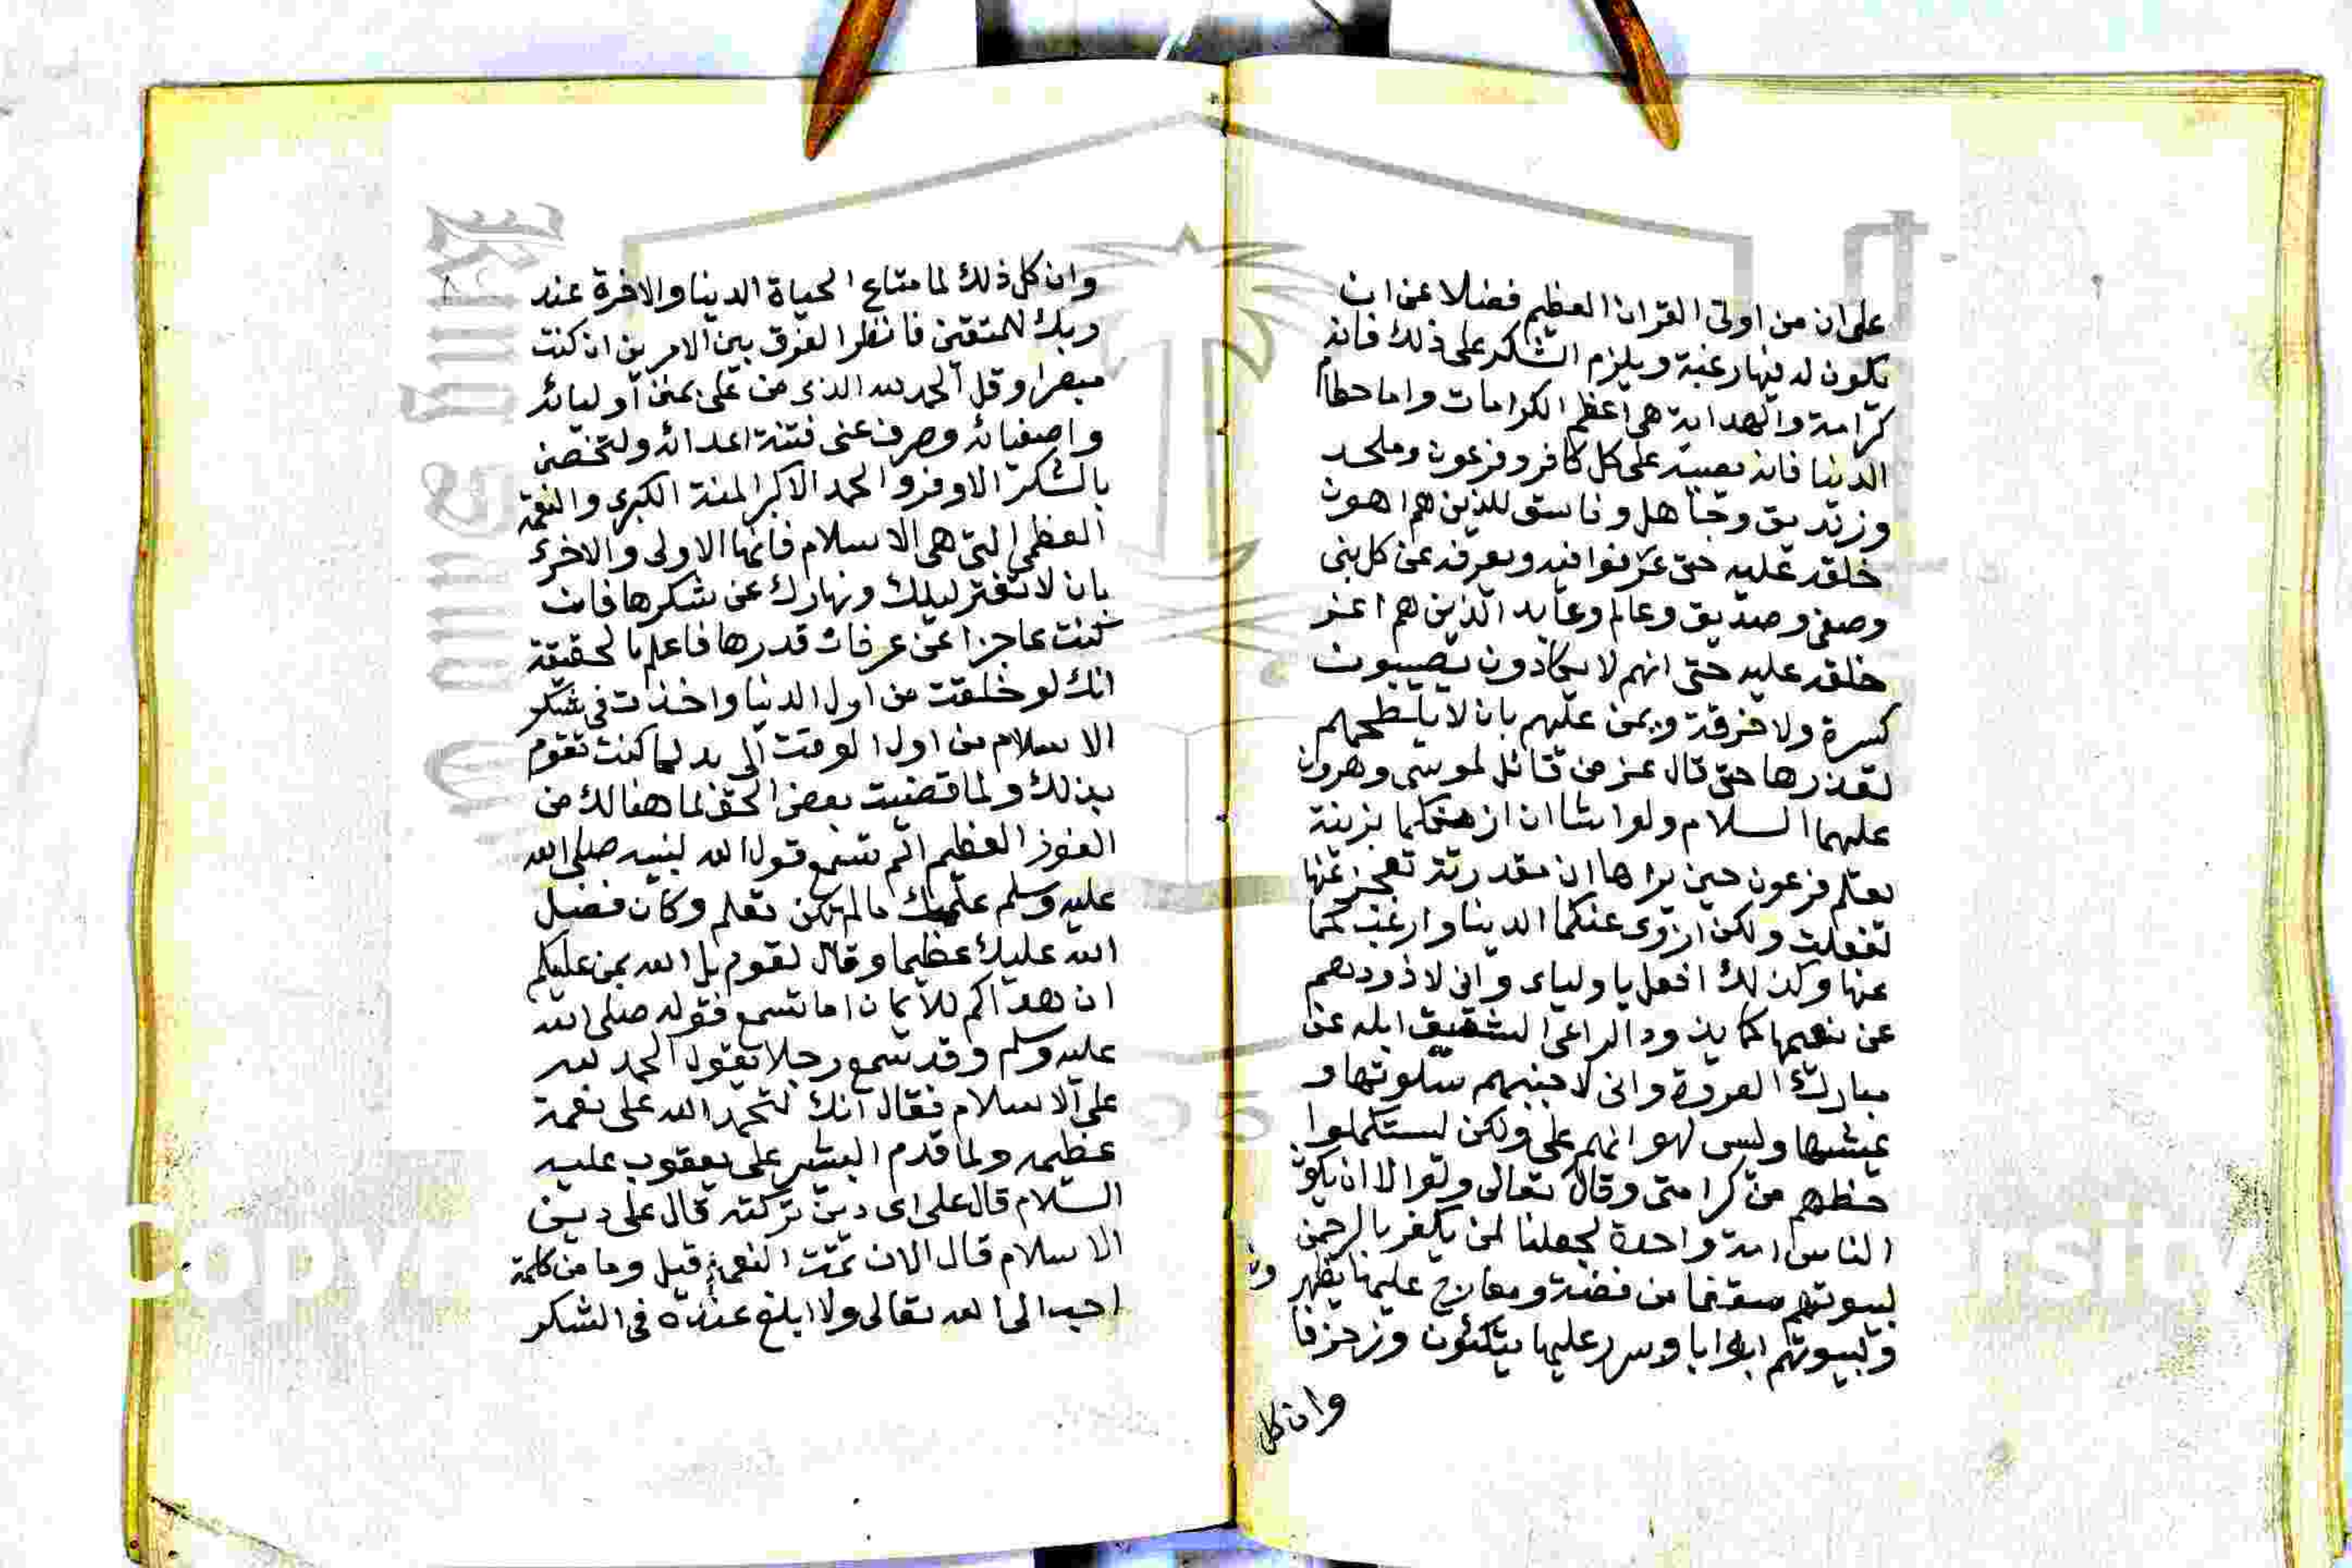 على ان من اوتى القران العظيم فضلا عن ان
يكون له فيها رغبة ويلزم الشكر على ذلك فانه
كرامة والهداية هي اعظم الكرامات واما حطام
الدنيا فانه يصيبه على كل كافر وفرعون وملحد
وزنديق وجاهل وفاسق للذين هم اهون
خلقه عليه حتى غرفوا فيه ويعرفه عن كل بنى
وصفى وصديق وعالم وعابد الذين هم اعز
خلقه عليه حتى انهم لا يكادون يصيبون
كسرة ولا خرقة ويمن عليهم بان لا يلطخهم
لقذرها حتى قال عز من قائل لموسى وهرون
عليهما السلام ولو اشا ان ازينكما بزينة
يعلم فرعون حين يراها ان مقدرته تعجز عنها
لفعلت ولكن ازوى عنكما الدنيا وارغب بكما
عنها وكذلك افعل باوليائى وانى لاذودهم
عن نعيمها كما يذود الراعى الشفيق ابله عن
مبارك العروة وانى لاجنبهم سلوتها و
عيشها وليس لهوانهم على ولكن ليستكملوا
حظهم من كرامتى وقال تعالى ولولا ان يكون
الناس امة واحدة لجعلنا لمن يكفر بالرحمن
لبيوتهم سقفا من فضة ومعارج عليها يظهرون
ولبيوتهم ابوابا وسرر عليها يتكئون وزخرفا
وان كل
وان كل ذلك لما متاع الحياة الدنيا والاخرة عند
ربك للمتقين فانظر الفرق بين الامرين ان كنت
مبصرا وقل الحمد لله الذى من على بمنن اوليائه
واصفيائه وصرف عنى فتنة اعدائه ولتخصن
بالشكر الاوفر والحمد الاكبر المنة الكبرى والنعمة
العظمى التى هى الاسلام فانها الاولى والاخرى
بان لا تفتر ليلك ونهارك عن شكرها فان
كنت عاجزا عن عرفان قدرها فاعلم بالحقيقة
انك لو خلقت من اول الدنيا واخذت فى شكر
الاسلام من اول الوقت الى بد لما كنت تقوم
بذلك ولما قضيت بعض الحق لما هنالك من
الفوز العظيم الم تسمع قول الله لنبيه صلى الله
عليه وسلم علمك مالم تكن تعلم وكان فضل
الله عليك عظيما وقال لقوم بل الله يمن عليكم
ان هداكم للايمان اما تسمع فقوله صلى الله
عليه وسلم وقد سمع رجلا يقول الحمد لله
على الاسلام فقال انك لتحمد الله على نعمة
عظيمه ولما قدم البشير على يعقوب عليه
السلام قال على اى دين تركته قال على دين
الاسلام قال الان تمت النعمة قيل وما من كلمة
احب الى الله تعالى ولا ابلغ عنده فى الشكر